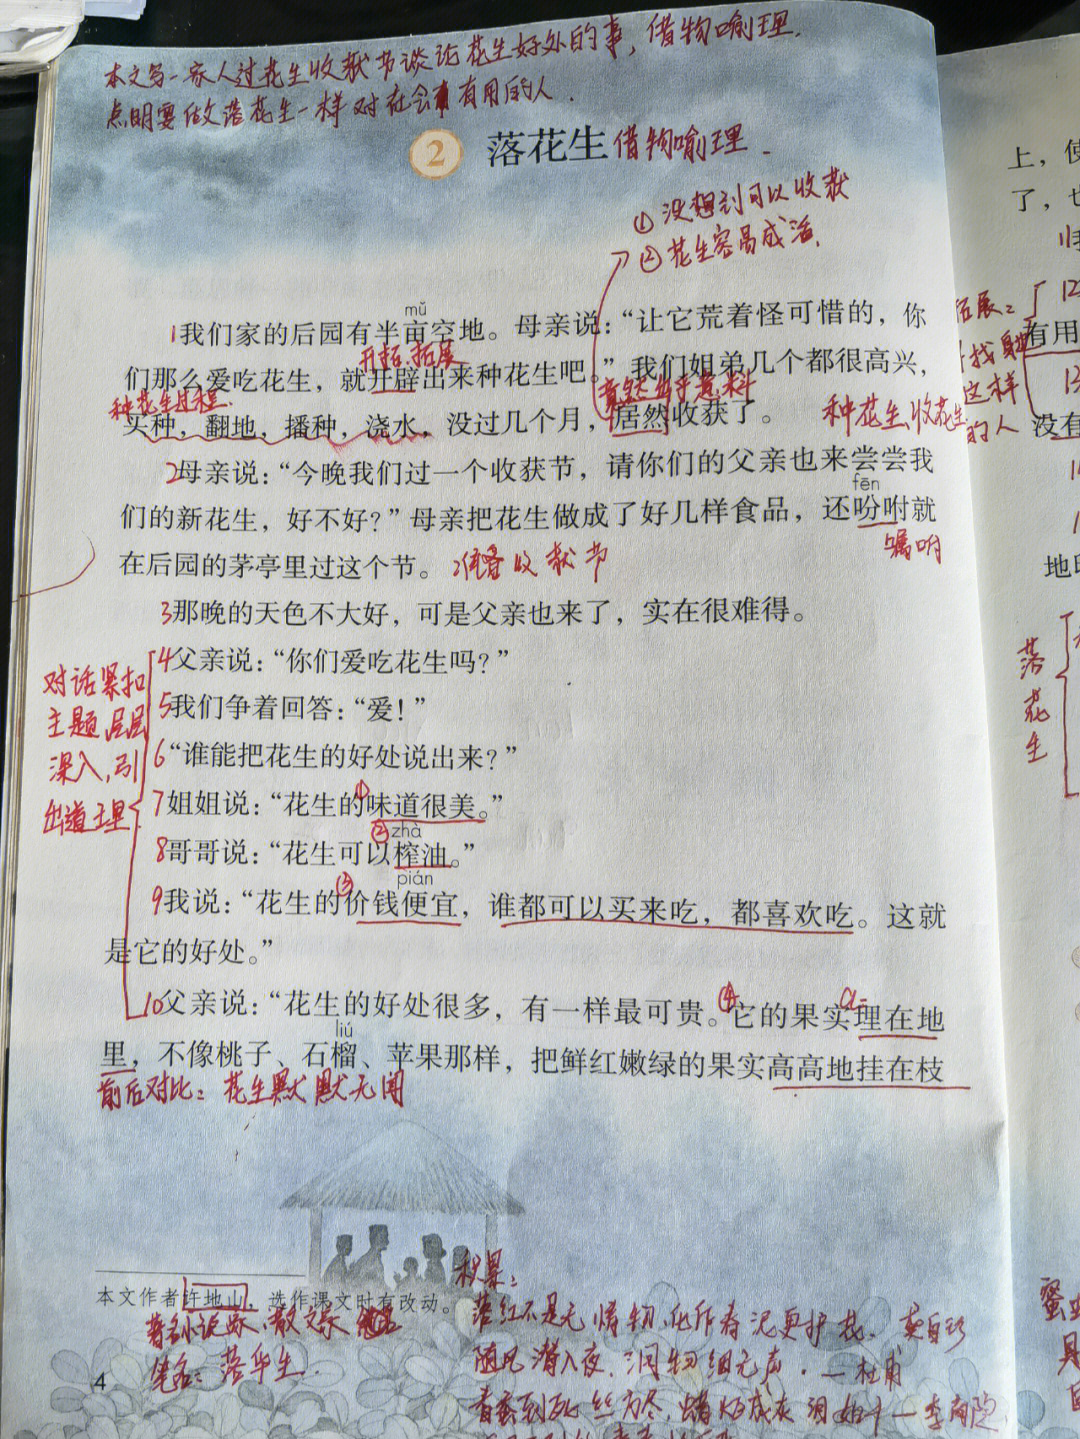 本文写一家人过花生收获节谈论花生好处的事，借物喻理.
点明要做落花生一样对社会有用的人.
2 落花生 借物喻理.
①没想到可以收获
②花生容易成活.
mǔ
1我们家的后园有半亩空地。母亲说：“让它荒着怪可惜的，你
开拓.拓展
们那么爱吃花生，就开辟出来种花生吧。”我们姐弟几个都很高兴，
种花生过程. 竟然出乎意料
买种，翻地，播种，浇水，没过几个月，居然收获了。 种花生、收花生
2母亲说：“今晚我们过一个收获节，请你们的父亲也来尝尝我
fēn
们的新花生，好不好？”母亲把花生做成了好几样食品，还吩咐就
嘱咐
在后园的茅亭里过这个节。 准备收获节
3那晚的天色不大好，可是父亲也来了，实在很难得。
4父亲说：“你们爱吃花生吗？”
5我们争着回答：“爱！”
6“谁能把花生的好处说出来？”
对话紧扣
主题,层层
深入,引
出道理.
7姐姐说：“花生的①味道很美。”
② zhà
8哥哥说：“花生可以榨油。”
③ pián
9我说：“花生的价钱便宜，谁都可以买来吃，都喜欢吃。这就
是它的好处。”
④
10父亲说：“花生的好处很多，有一样最可贵。它的果实埋在地
liú
里，不像桃子、石榴、苹果那样，把鲜红嫩绿的果实高高地挂在枝
前后对比：花生默默无闻
本文作者许地山，选作课文时有改动。
著名小说家、散文家
笔名：落华生.
积累：
落红不是无情物,化作春泥更护花. 龚自珍
随风潜入夜,润物细无声.—杜甫
春蚕到死丝方尽,蜡炬成灰泪始干—李商隐
4
上，使
了，也
拓展：
有用
找身边
这样
的人
没有
地
落花生